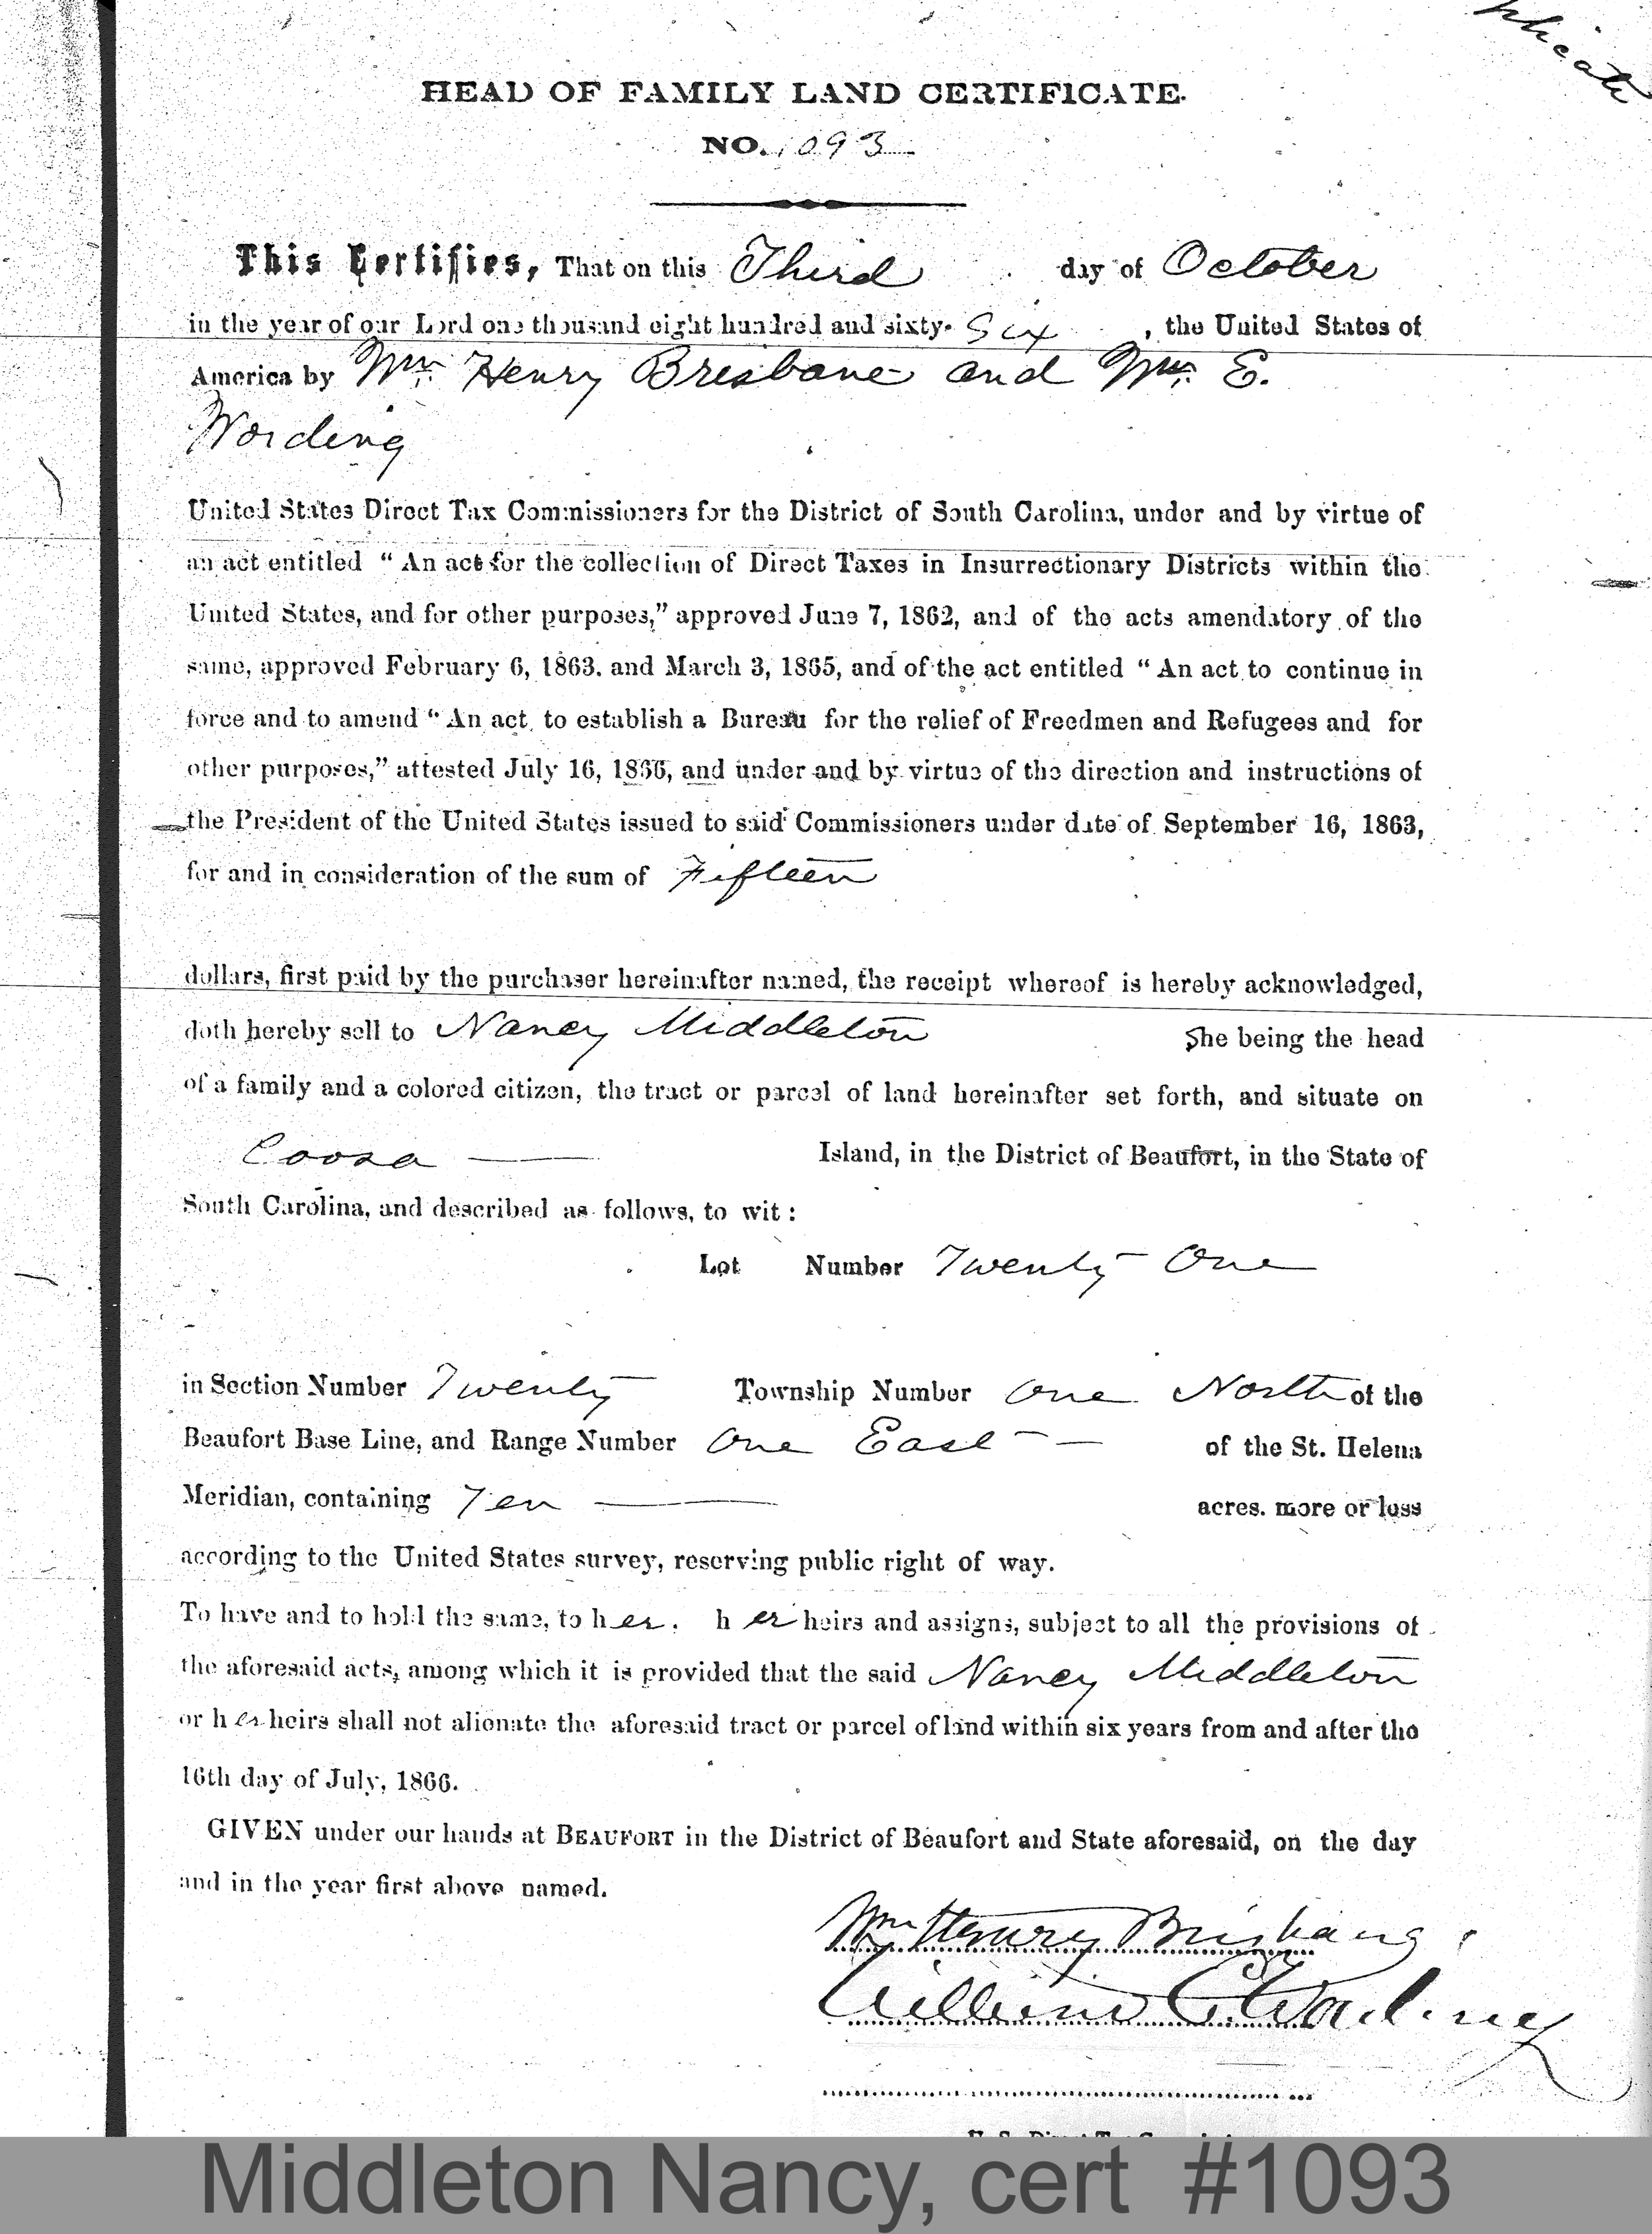 HEAD OF FAMILY LAND CERTIFICATE.
NO. 1093
This Certifies, That on this Third day of October
in the year of our Lord one thousand eight hundred and sixty-Six, the United States of
America by Wm. Henry Brisbane and Wm. E.
Wording
United States Direct Tax Commissioners for the District of South Carolina, under and by virtue of
an act entitled “An act for the collection of Direct Taxes in Insurrectionary Districts within the
United States, and for other purposes,” approved June 7, 1862, and of the acts amendatory of the
same, approved February 6, 1863. and March 3, 1865, and of the act entitled “An act to continue in
force and to amend “An act to establish a Bureau for the relief of Freedmen and Refugees and for
other purposes,” attested July 16, 1866, and under and by virtue of the direction and instructions of
the President of the United States issued to said Commissioners under date of September 16, 1863,
for and in consideration of the sum of Fifteen
dollars, first paid by the purchaser hereinafter named, the receipt whereof is hereby acknowledged,
doth hereby sell to Nancy Middleton She being the head
of a family and a colored citizen, the tract or parcel of land hereinafter set forth, and situate on
Coosa — Island, in the District of Beaufort, in the State of
South Carolina, and described as follows, to wit:
Lot Number Twenty One
in Section Number Twenty Township Number One North of the
Beaufort Base Line, and Range Number One East — of the St. Helena
Meridian, containing Ten — acres. more or less
according to the United States survey, reserving public right of way.
To have and to hold the same, to her, her heirs and assigns, subject to all the provisions of
the aforesaid acts, among which it is provided that the said Nancy Middleton
or her heirs shall not alienate the aforesaid tract or parcel of land within six years from and after the
16th day of July, 1866.
GIVEN under our hands at BEAUFORT in the District of Beaufort and State aforesaid, on the day
and in the year first above named.
Wm Henry Brisbane
William E. Wording
Middleton Nancy, cert #1093